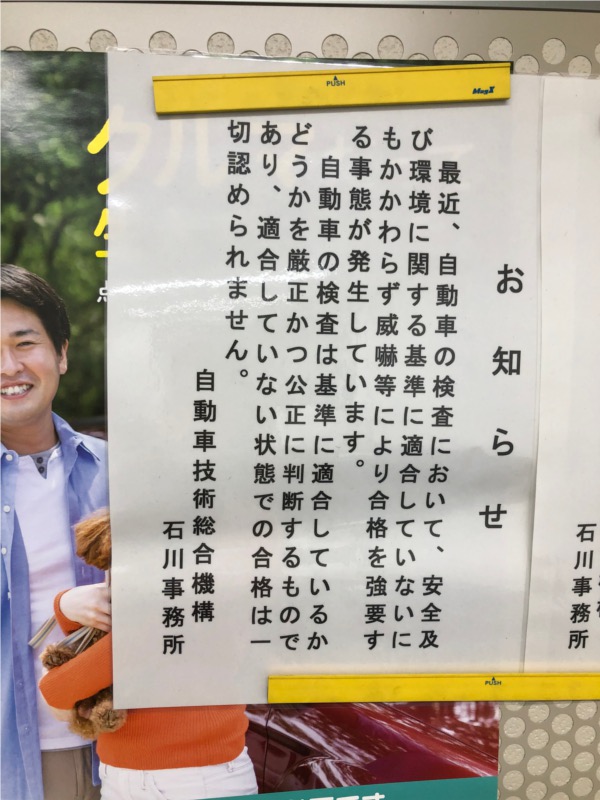 お知らせ
最近、自動車の検査において、安全及
び環境に関する基準に適合していないに
もかかわらず威嚇等により合格を強要す
る事態が発生しています。
自動車の検査は基準に適合しているか
どうかを厳正かつ公正に判断するもので
あり、適合していない状態での合格は一
切認められません。
自動車技術総合機構
石川事務所
PUSH
MagX
PUSH
石川事務所